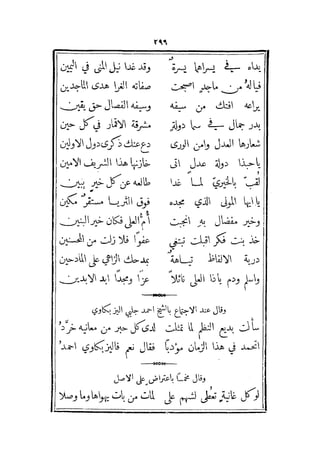 ٢٩٦
يداه في يسراها يسرة وقد غدا نيل المنى في اليمين
فياله من ماجد اصبحت صفاته الغرا هدى الماجدين
يراعه افتك من سيفه وسيفه الفصال حق يقين
بدر جمال في سما دولة مشرقة الاقمار في كل حين
شعارها العدل وامن الورى دع عنك ذكرى دول الاولين
ياحبذا دولة عدل اتى خازنها هذا الشريف الامين
لقب بالخيري لما غدا طالعه عن كل خير يبين
يا ايها المولى الذي مجده فوق الثريا مستقر مكين
وخير مفضال به انجبت أم العلى فكان خير البنين
خذ بنت فكر اقبلت تبتغي عفوا فلا زلت من المحسنين
درية الالفاظ تياهة بمدحك الزاهي على المادحين
واسلم ودم ياذا العلى نائلا عزا ومجدا ابد الابدين
وقال عند الاجتماع بالشيخ احمد جلبي اليزبكاوي
سألت بديع النظم لما تمثلت لدى كل حبر من معانيه خرد
اتحمد في هذا الزمان مؤدبا فقال نعم فاليزبكاوي احمد
وقال مخمسا باعتراض على الاصل
لو كل غانية تعطى لشهم على لمات من بات يهواها وما وصلا